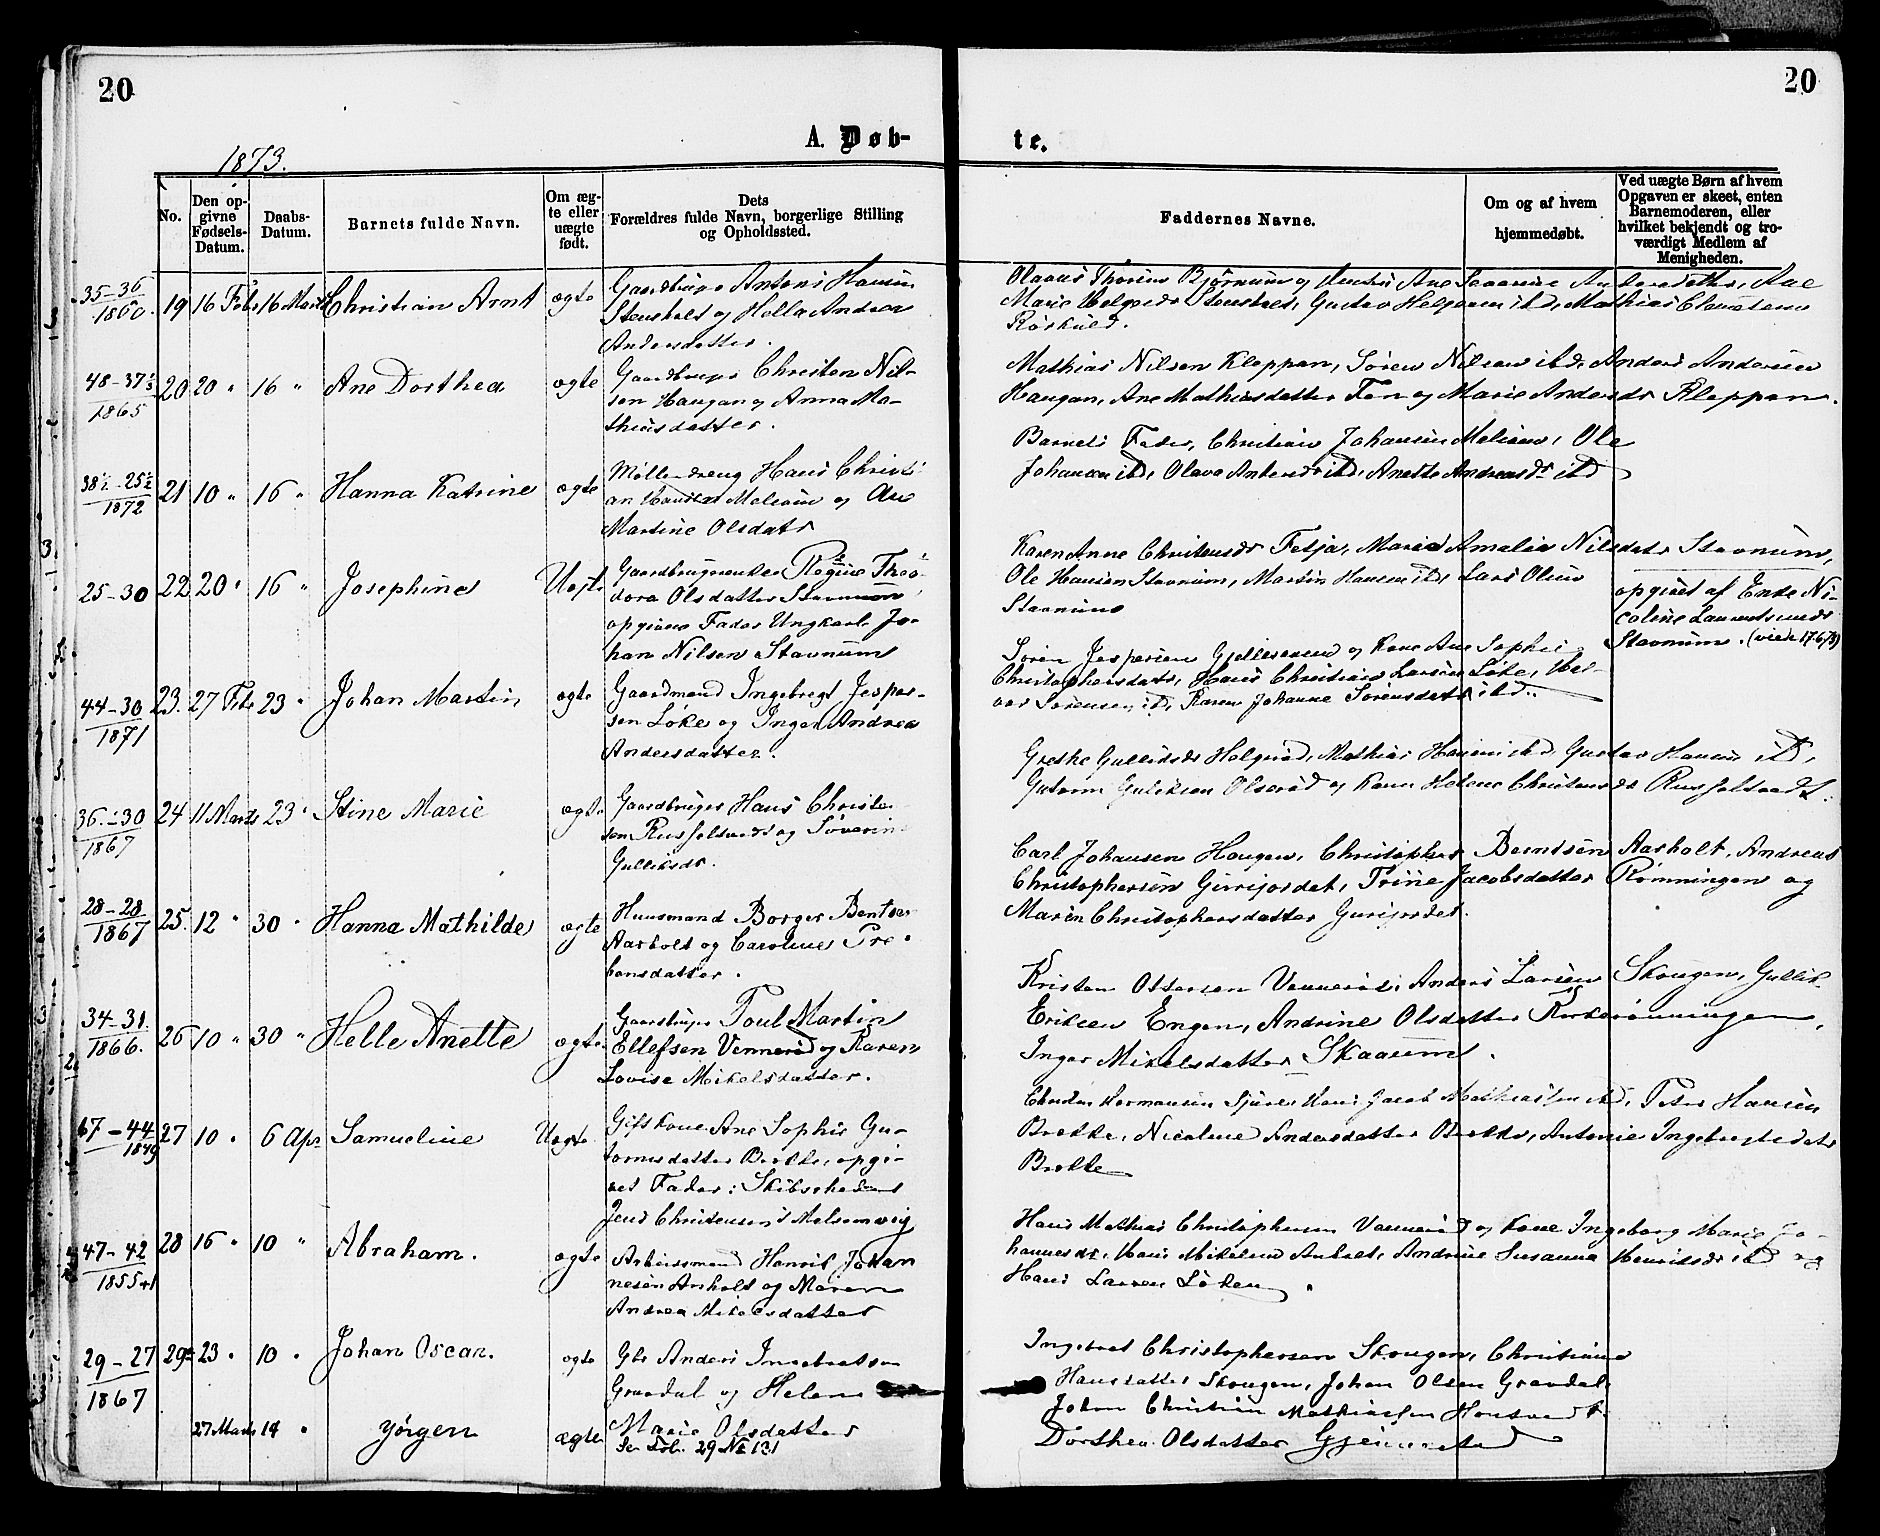 20
20
A. Døb-
te.
1873.
No.
Den opgivne Fødsels-Datum.
Daabs-Datum.
Barnets fulde Navn.
Om ægte eller uægte født.
Dets Forældres fulde Navn, borgerlige Stilling og Opholdssted.
Faddernes Navne.
Om og af hvem hjemmedøbt.
Ved uægte Børn af hvem Opgaven er skeet, enten Barnemoderen, eller hvilket bekjendt og troværdigt Medlem af Menigheden.
35-36
1860.
19 16 Feb 16 Marts Christian Arnt ægte
Gaardbruger Antoni Hansen
Stensholt og Helle Andrea
Andersdatter.
Olaus Thorsen Bjørnum og Hustru Ane
Marie Stensholt, Gustav ibd, Mathias Christensen
48-37½
1865
20 20 " 16 " Ane Dorthea ægte
Gaardbruger Christen Nil-
sen Haugan og Anna Ma-
thiasdatter.
Mathias Nilsen Kleppan, Søren Nilsen ibd, Anders Andersen
Haugan, Ane Mathiasdatter Fen og Marie Andersdr Kleppan.
38½-25½
1872
21 10 " 16 " Hanna Katrine ægte
Møllerdreng Hans Christi-
an Hansen Melsom og Ane
Martine Olsdatr
Barnets Fader, Christian Johansen Melsom, Ole
Johansen ibd, Olava ibd, Anette Andreasdr ibd
25-30
22 20 " 16 " Josephine Uægte
Gaardbrugerenke Regine Theo-
dora Olsdatter Stavnum,
opgiven Fader Ungkarl Jo-
han Nilsen Stavnum
Karen Anne Christensdr Felja, Maria Amalie Nilsdatr Stavnum,
Ole Hansen Stavnum, Martin Hansen ibd, Lars Olsen
Stavnum
opgivet af Enke Ni-
coline Lauritsens
Stavnum. (viede 17-6/73)
44-30
1871
23. 27 Feb 23 " Johan Martin ægte
Gaardmand Ingebregt Jesper-
sen Løke og Inger Andrea
Andersdatter.
Søren Jespersen og Kone Ane Sophie
Christophersdatr, Hans Christian Larsen Løke,
Sørensen ibd, Karen Johanne Sørensdatr ibd.
36-30
1867
24 11 Marts 23 " Stine Marie ægte
Gaardbruger Hans Christen-
sen og Søverine
Gulliksdr.
Grethe Gulliksdr, Mathias Hansen ibd, Gustav Hansen ibd,
Guttorm Gulliksen og Karen Helene Christensdr
28-28
1867
25. 12 " 30 " Hanna Mathilde ægte
Huusmand Borger Bentsen
Aasholt og Caroline Pre-
bensdatter.
Carl Johansen Haugen, Christopher Berntsen Aasholt, Andreas
Christophersen Gurrijordet, Trine Jacobsdatter Rønningen og
Maren Christophersdatter Gurijordet.
34-31.
1866.
26 10 " 30 " Helle Anette ægte
Gaardbruger Poul Martin
Ellefsen Vennerød og Karen
Lovise Mikelsdatter.
Kristen Ottersen Vennerød, Anders Larsen Skougen, Gullik
Eriksen Engen, Andrine Olsdatter Kirkerønningen,
Inger Mikelsdatter Skaarum.
67-44
1849
27 10 " 6 Apr Samueline Uægte
Gift Kone Ane Sophie Gu-
tormsdatter Brekke, opgi-
vet Fader: Skibsreder
Jens Christensen Melsomvig
Hermansen, Jacob Mathiassen ibd, Peter Hansen
Brekke, Nicoline Andersdatter Brekke, Antonie Ingebregtsdatr
Brekke
47-42
1855+1
28 16 " 10 " Abraham. ægte
Arbeidsmand Henrik Johan-
nesen Anholt og Maren
Andrea Mikelsdatter
Hans Mathias Christophersen Vennerød og Kone Ingeborg Marie Jo-
hannesdr, Hans Mikelsen Anholt, Andrine Susanna Henriksdr ibd og
Hans Larsen Løken
29-27
1867
29 23 " 10 " Johan Oscar. ægte
Gbr Anders Ingebretsen
Gravdal og Helene
Marie Olsdatter
Ingebret Christophersen Skougen, Christiane
Hansdatter Skougen, Johan Olsen Gravdal
Johan Christian Mathiassen
Dorthea Olsdatter
27 Marts 14 " Jørgen ægte
Se Fol. 29 No 131